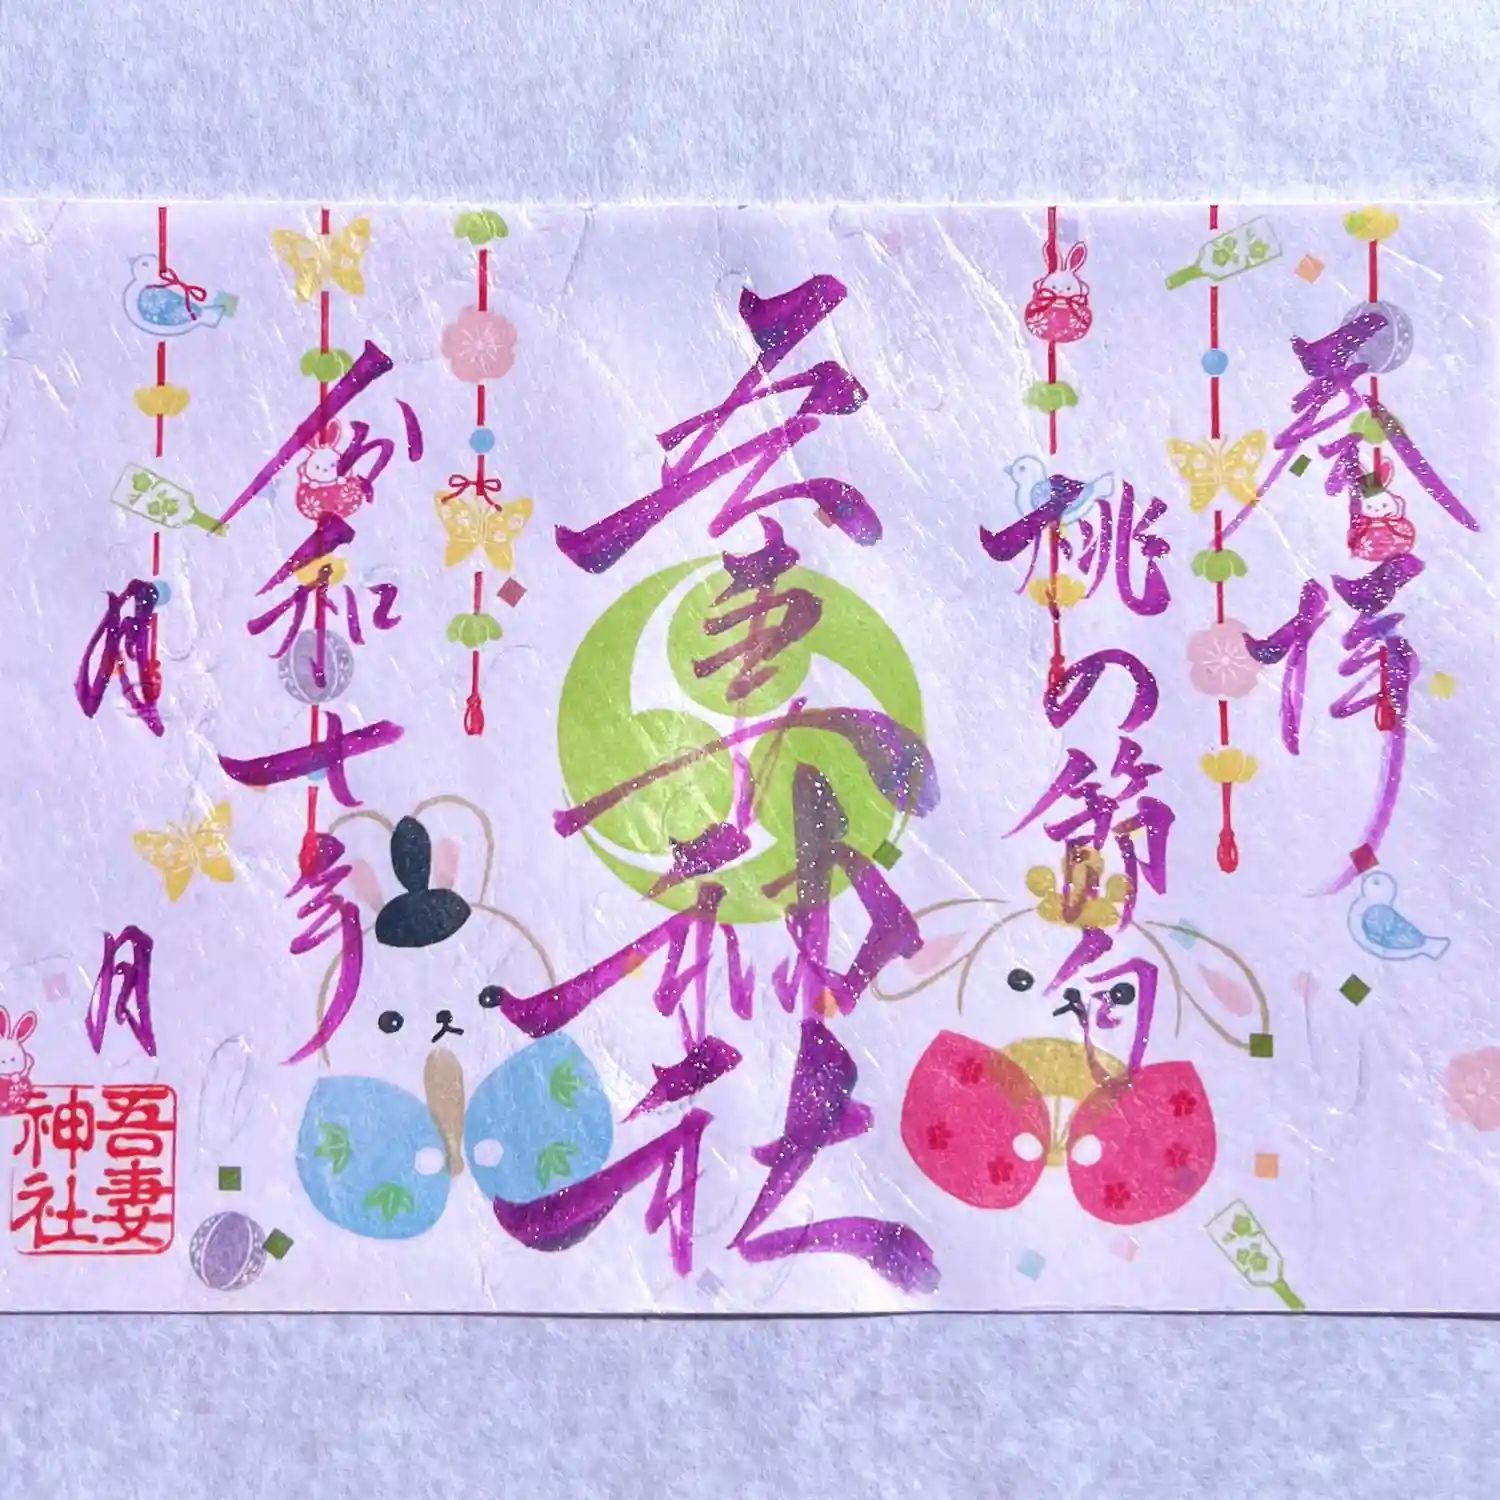 奉拝
桃の節句
吾妻神社
令和十年
月 日
吾妻
神社